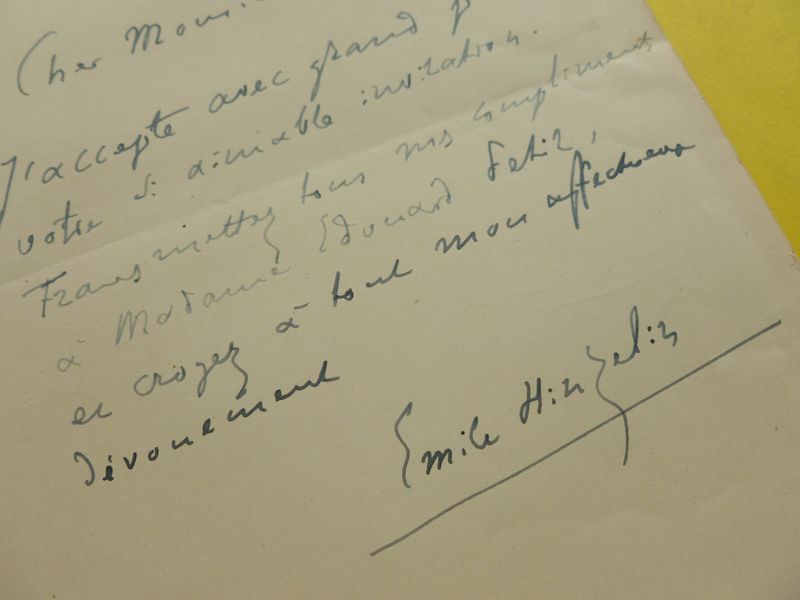 Cher Monsi
J'accepte avec grand p
votre si aimable invitation.
Transmettez tous mes compliments
à Madame Edouard Petit,
et croyez à tout mon affectueux
dévouement
Emile Hinzelin